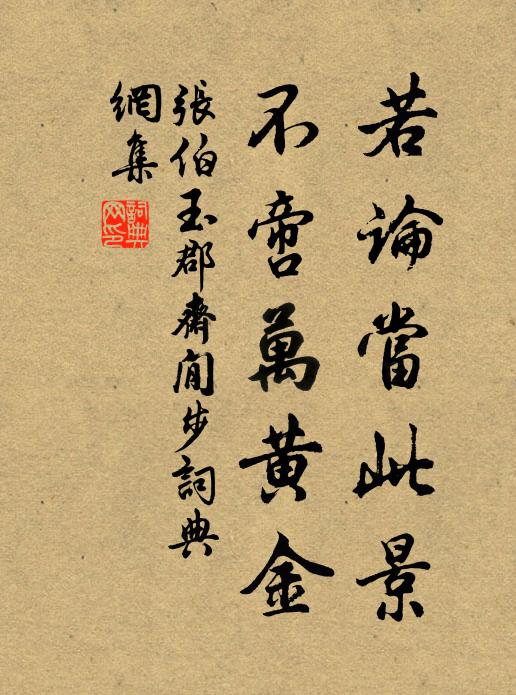 若論當此景
不啻萬黃金
張伯玉郡齋閒步詞典
網集
詞典
网印